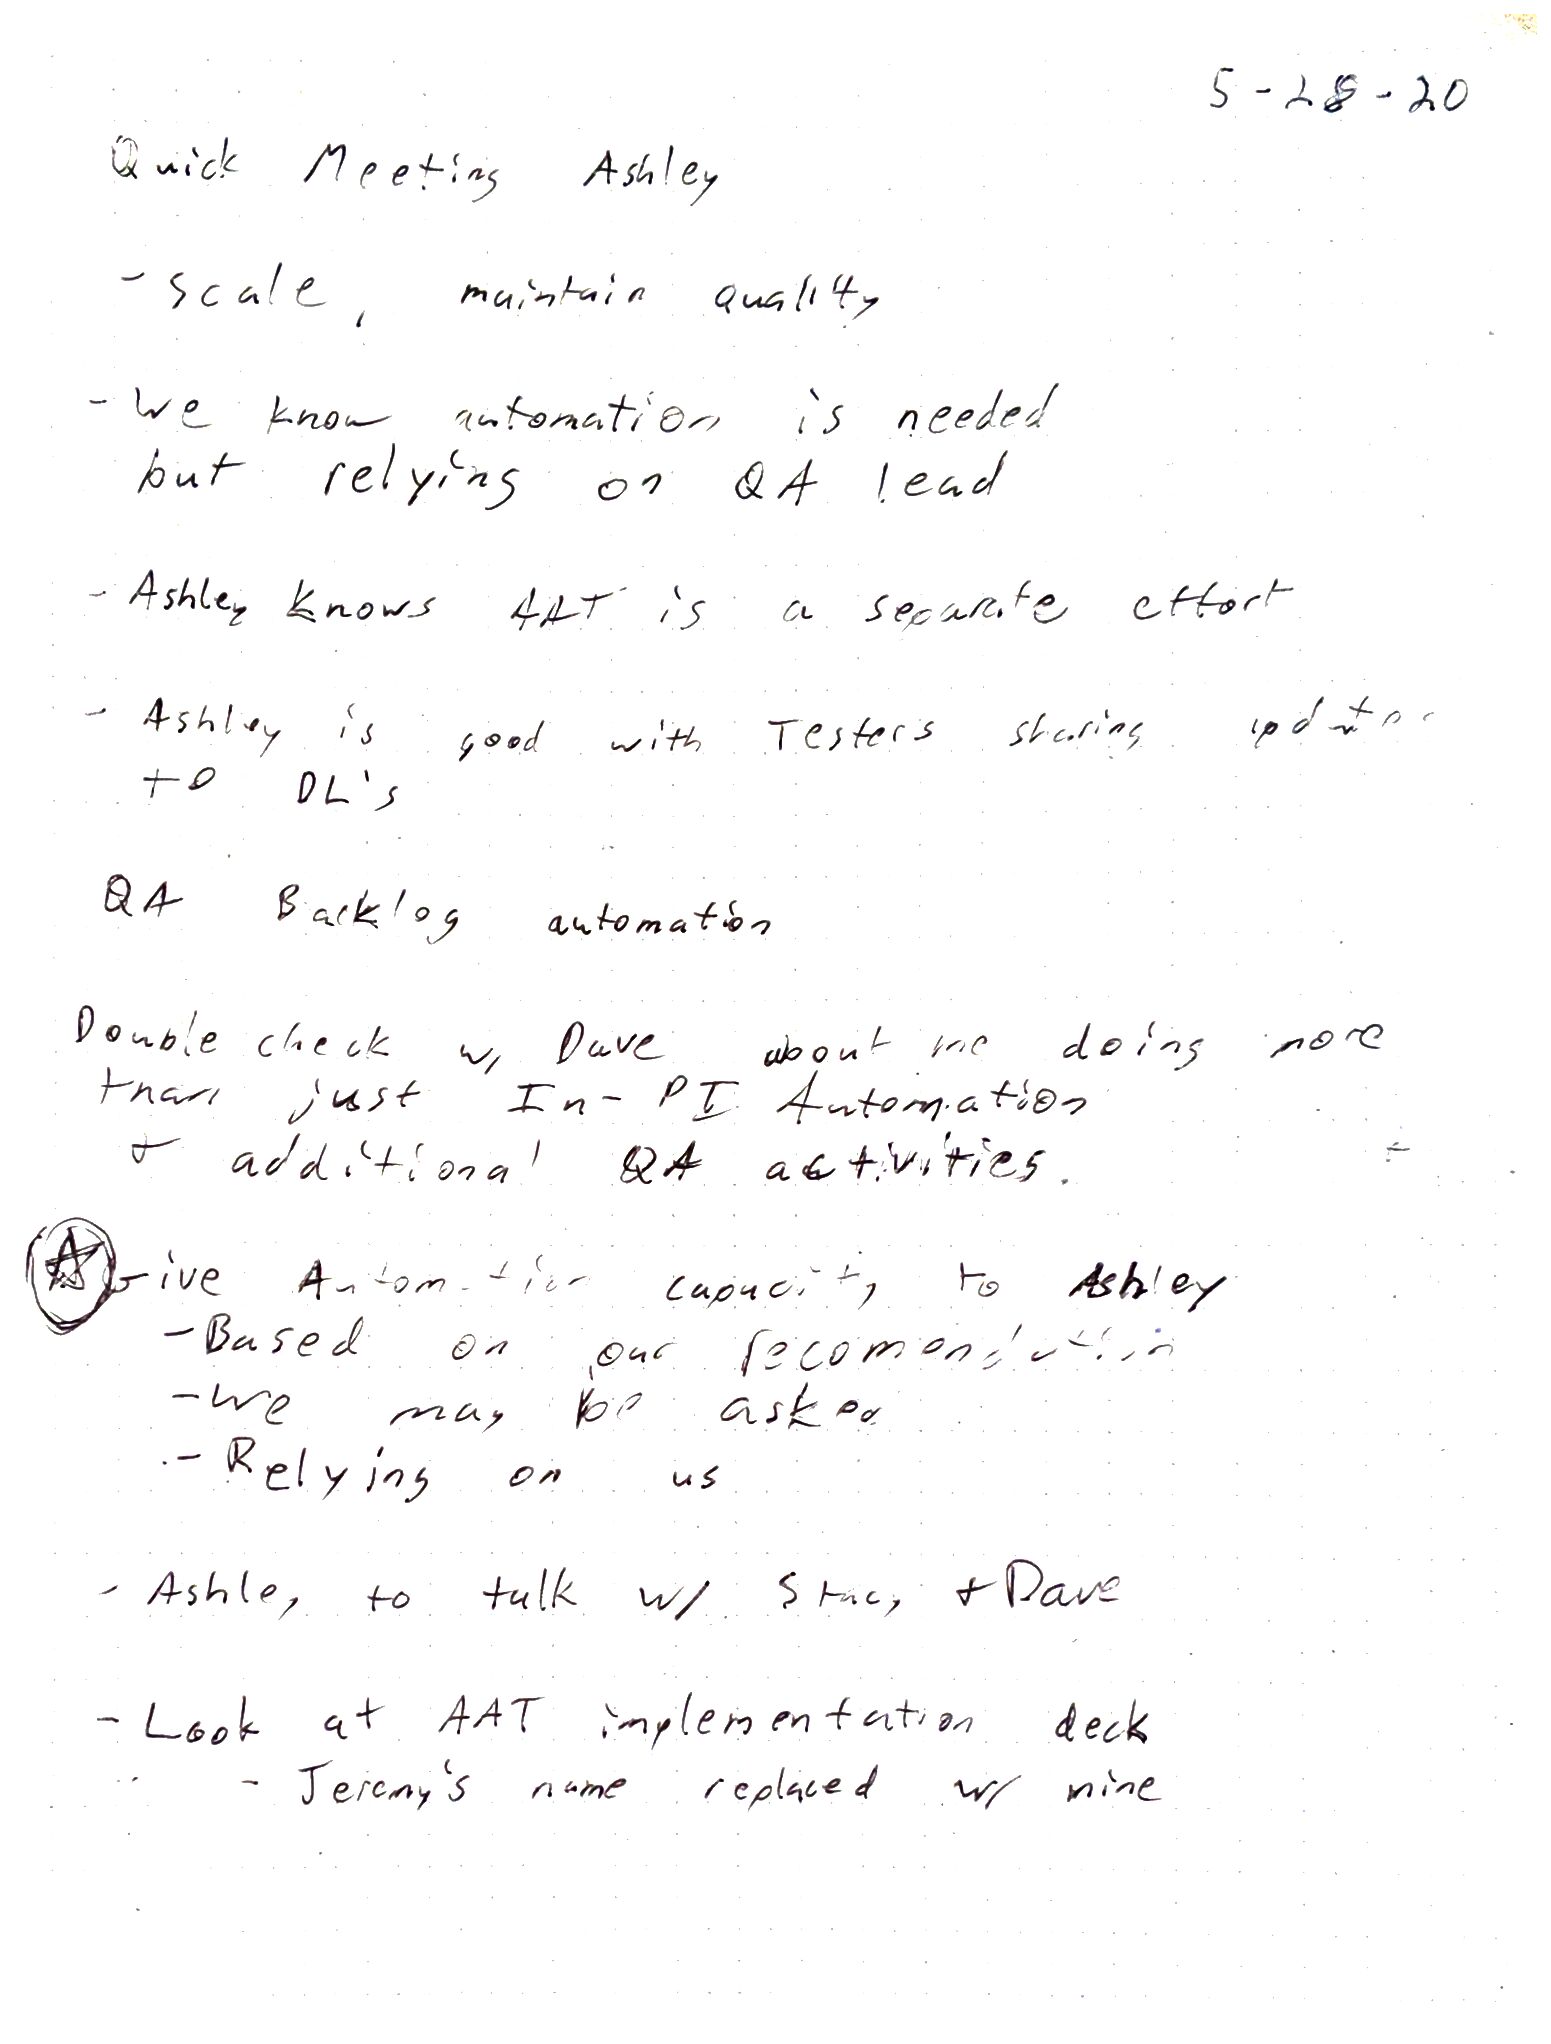 5-28-20
Quick Meeting Ashley
- scale, maintain quality
- We know automation is needed
but relying on QA lead
- Ashley knows AAT is a separate effort
- Ashley is good with Testers sharing updates
to DL's
QA Backlog automation
Double check w/ Dave about me doing more
than just In-PI Automation
+ additional QA activities.
Give Automation capacity to Ashley
- Based on our recomendation
- We may be asked
- Relying on us
- Ashley to talk w/ Stacy + Dave
- Look at AAT implementation deck
- Jeremy's name replaced w/ mine